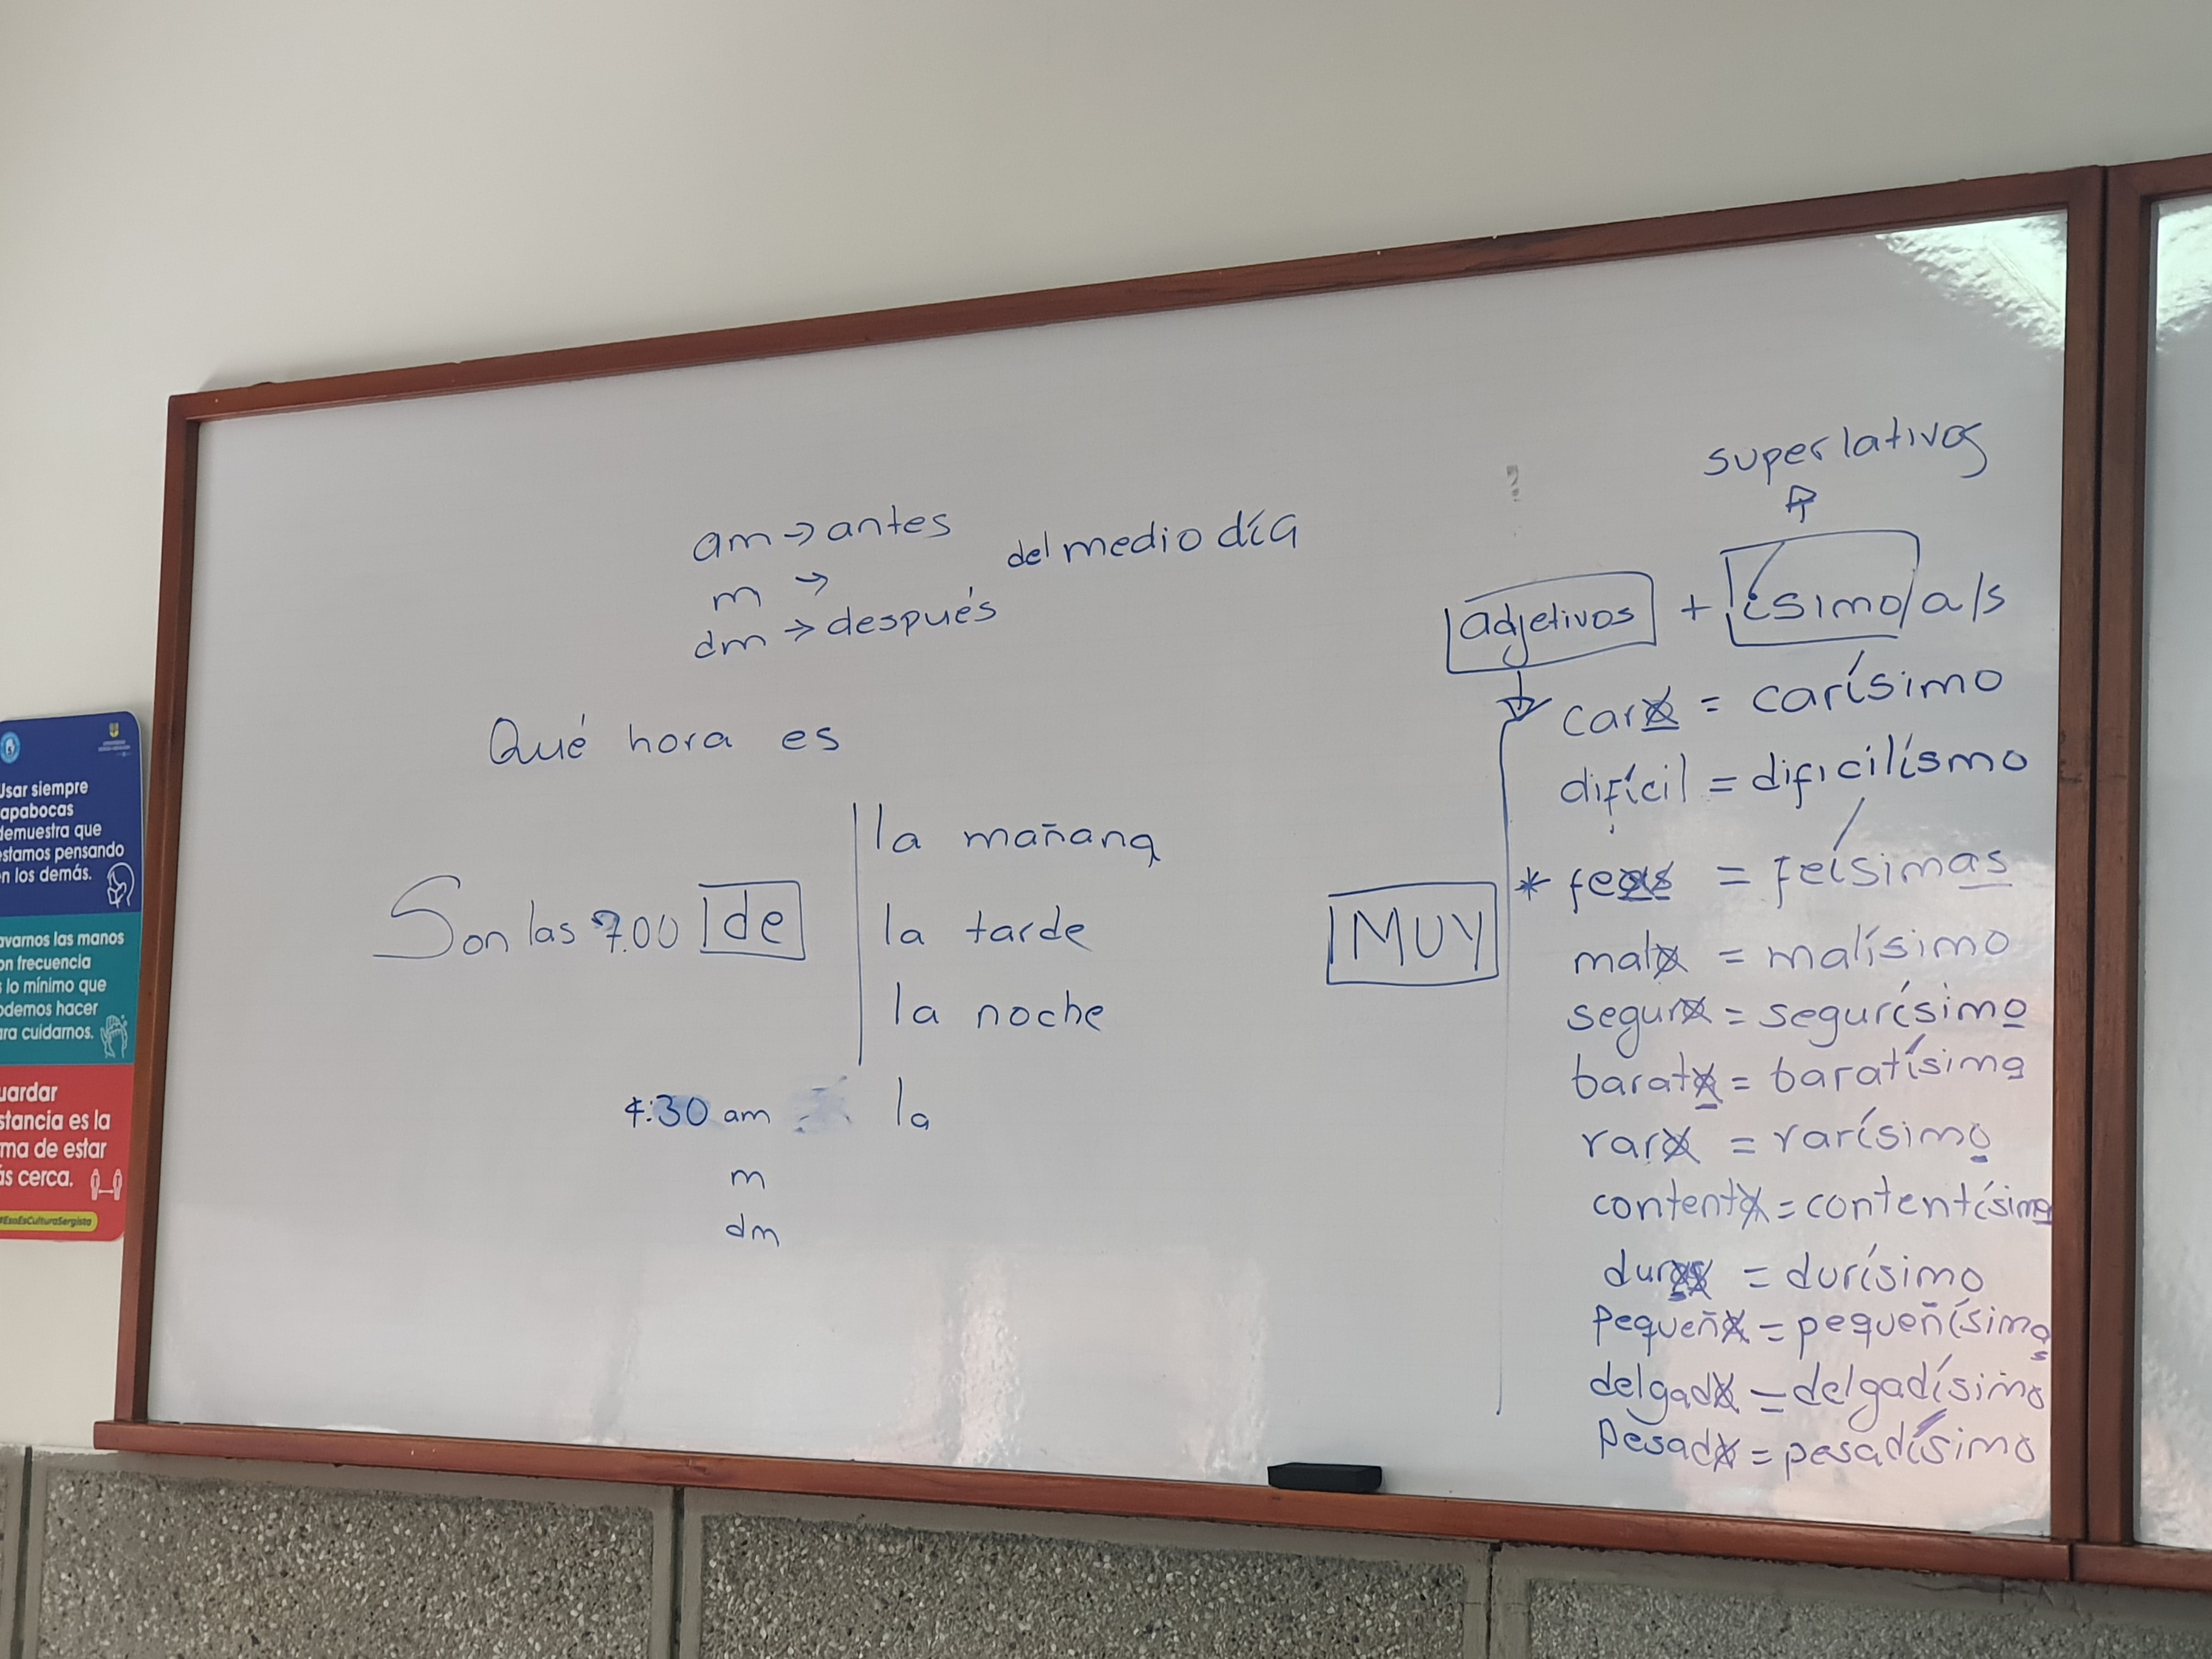 am → antes
m →
dm → después
del medio día
Qué hora es
Son las 7:00 de
la mañana
la tarde
la noche
4:30 am
la
m
dm
superlativos
adjetivos + ísimo/a/s
MUY
caro = carísimo
difícil = dificilísmo
* feas = feísimas
malo = malísimo
seguro = segurísimo
barata = baratísima
raro = rarísimo
contenta = contentísima
= durísimo
= pequeñísima
delgado = delgadísimo
Pesado = pesadísimo
Usar siempre
tapabocas
demuestra que
estamos pensando
en los demás.
Lavarnos las manos
con frecuencia
es lo mínimo que
podemos hacer
para cuidarnos.
uardar
stancia es la
ma de estar
ás cerca.
#EsoEsCulturaSergista